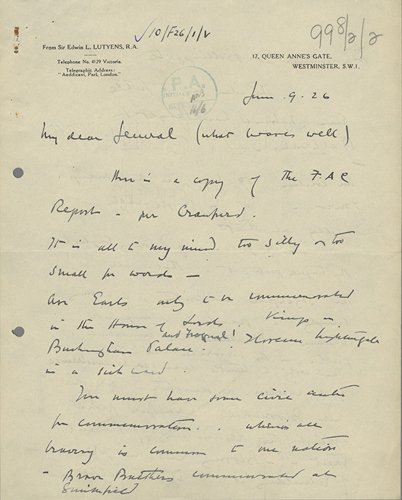 √10/F26/1/V
998/2/2
From Sir Edwin L. LUTYENS, R.A.
Telephone No. 4129 Victoria.
Telegraphic Address:
"Aedificavi, Parl, London."
17, QUEEN ANNE'S GATE,
WESTMINSTER, S.W.1.
Jun. 9. 26
My dear General (what waves well)
Here is a copy of the F.A.C
Report - per Crawford.
It is all to my mind too silly or too
small for words —
Are Earls only to be commemorated
in the House of Lords. Kings in
and Frogmore!
Buckingham Palace. . Florence Nightingale
in a sick ward.
You must have some civic centre
for commemoration. . whereas all
bravery is common to one nation
- Brave Butchers commemorated at
Smithfield